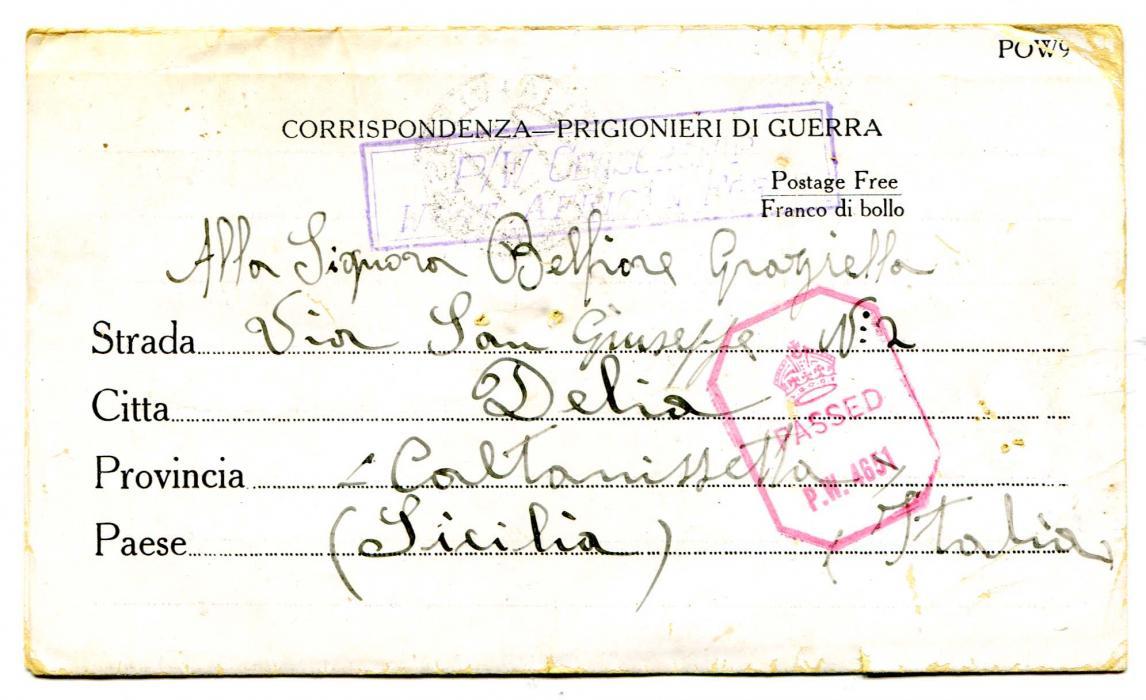 POW/9
CORRISPONDENZA—PRIGIONIERI DI GUERRA
P/W
Postage Free
Franco di bollo
Alla Signora Belfiore Graziella
Strada Via San Giuseppe N: 2
Citta Delia
PASSED
Provincia Caltanissetta
P.W. 4651
Paese (Sicilia) Italia